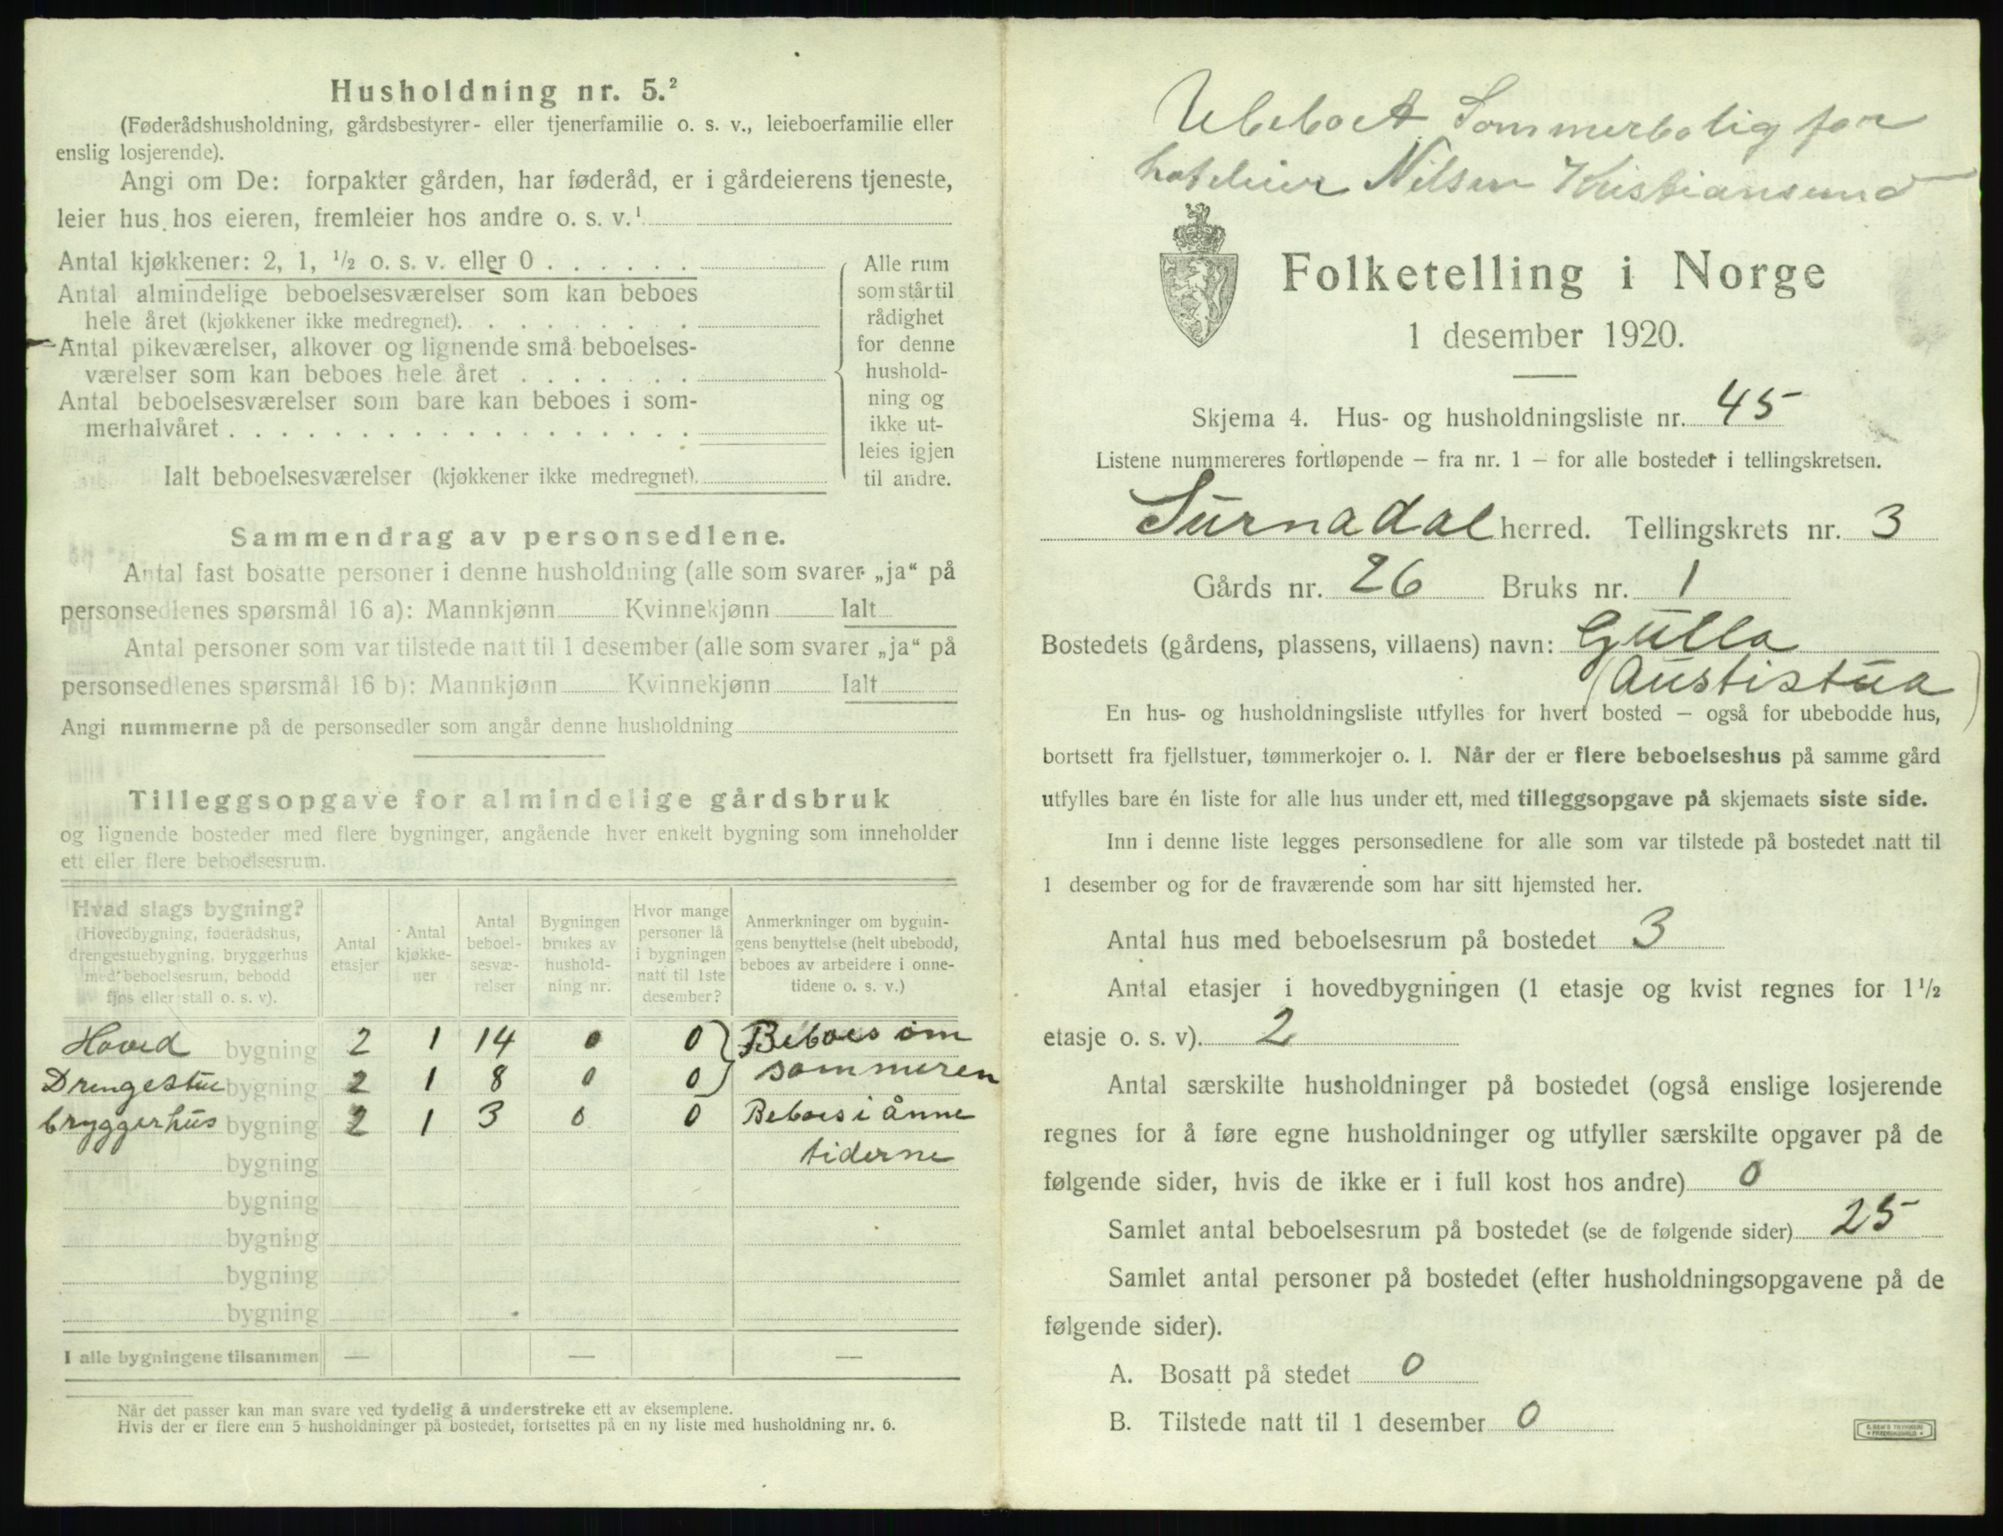 Husholdning nr. 5.²
(Føderådshusholdning, gårdsbestyrer- eller tjenerfamilie o. s. v., leieboerfamilie eller
enslig losjerende).
Angi om De: forpakter gården, har føderåd, er i gårdeierens tjeneste,
leier hus hos eieren, fremleier hos andre o. s. v.¹
Antal kjøkkener: 2, 1, ½ o. s. v. eller 0 . . . . . .
Antal almindelige beboelsesværelser som kan beboes
hele året (kjøkkener ikke medregnet). . . . . . . . .
Antal pikeværelser, alkover og lignende små beboelses-
værelser som kan beboes hele året . . . . . . .
Antal beboelsesværelser som bare kan beboes i som-
merhalvåret . . . . . . . . . . . . . . . . . .
Ialt beboelsesværelser (kjøkkener ikke medregnet).
Alle rum
som står til
rådighet
for denne
hushold-
ning og
ikke ut-
leies igjen
til andre.
Sammendrag av personsedlene.
Antal fast bosatte personer i denne husholdning (alle som svarer „ja“ på
personsedlenes spørsmål 16 a): Mannkjønn Kvinnekjønn Ialt
Antal personer som var tilstede natt til 1 desember (alle som svarer „ja“ på
personsedlenes spørsmål 16 b): Mannkjønn Kvinnekjønn Ialt
Angi nummerne på de personsedler som angår denne husholdning
Tilleggsopgave for almindelige gårdsbruk
og lignende bosteder med flere bygninger, angående hver enkelt bygning som inneholder
ett eller flere beboelsesrum.
Hvad slags bygning?
(Hovedbygning, føderådshus,
drengestuebygning, bryggerhus
med beboelsesrum, bebodd
fjøs eller stall o. s. v).
Antal
etasjer
Antal
kjøkke-
ner
Antal
beboel-
sesvæ-
relser
Bygningen
brukes av
hushold-
ning nr.
Hvor mange
personer lå
i bygningen
natt til 1ste
desember?
Anmerkninger om bygnin-
gens benyttelse (helt ubebodd,
beboes av arbeidere i onne-
tidene o. s. v.)
Hoved bygning 2 1 14 0 0 Beboes om
Drengestue bygning 2 1 8 0 0 sommeren
bryggerhus bygning 2 1 3 0 0 Beboes i ånne
bygning tiderne
bygning
bygning
bygning
bygning
I alle bygningene tilsammen — — —
Når det passer kan man svare ved tydelig å understreke ett av eksemplene.
Hvis der er flere enn 5 husholdninger på bostedet, fortsettes på en ny liste med husholdning nr. 6.
Ubeboet Sommerbolig for
hoteleier Nilsen Kristiansund
Folketelling i Norge
1 desember 1920.
Skjema 4. Hus- og husholdningsliste nr. 45
Listene nummereres fortløpende – fra nr. 1 – for alle bosteder i tellingskretsen.
Surnadal herred. Tellingskrets nr. 3
Gårds nr. 26 Bruks nr. 1
Bostedets (gårdens, plassens, villaens) navn: Gulla
(Austistua)
En hus- og husholdningsliste utfylles for hvert bosted – også for ubebodde hus,
bortsett fra fjellstuer, tømmerkojer o. l. Når der er flere beboelseshus på samme gård
utfylles bare én liste for alle hus under ett, med tilleggsopgave på skjemaets siste side.
Inn i denne liste legges personsedlene for alle som var tilstede på bostedet natt til
1 desember og for de fraværende som har sitt hjemsted her.
Antal hus med beboelsesrum på bostedet 3
Antal etasjer i hovedbygningen (1 etasje og kvist regnes for 1½
etasje o. s. v). 2
Antal særskilte husholdninger på bostedet (også enslige losjerende
regnes for å føre egne husholdninger og utfyller særskilte opgaver på de
følgende sider, hvis de ikke er i full kost hos andre) 0
Samlet antal beboelsesrum på bostedet (se de følgende sider) 25
Samlet antal personer på bostedet (efter husholdningsopgavene på de
følgende sider).
A. Bosatt på stedet 0
B. Tilstede natt til 1 desember 0